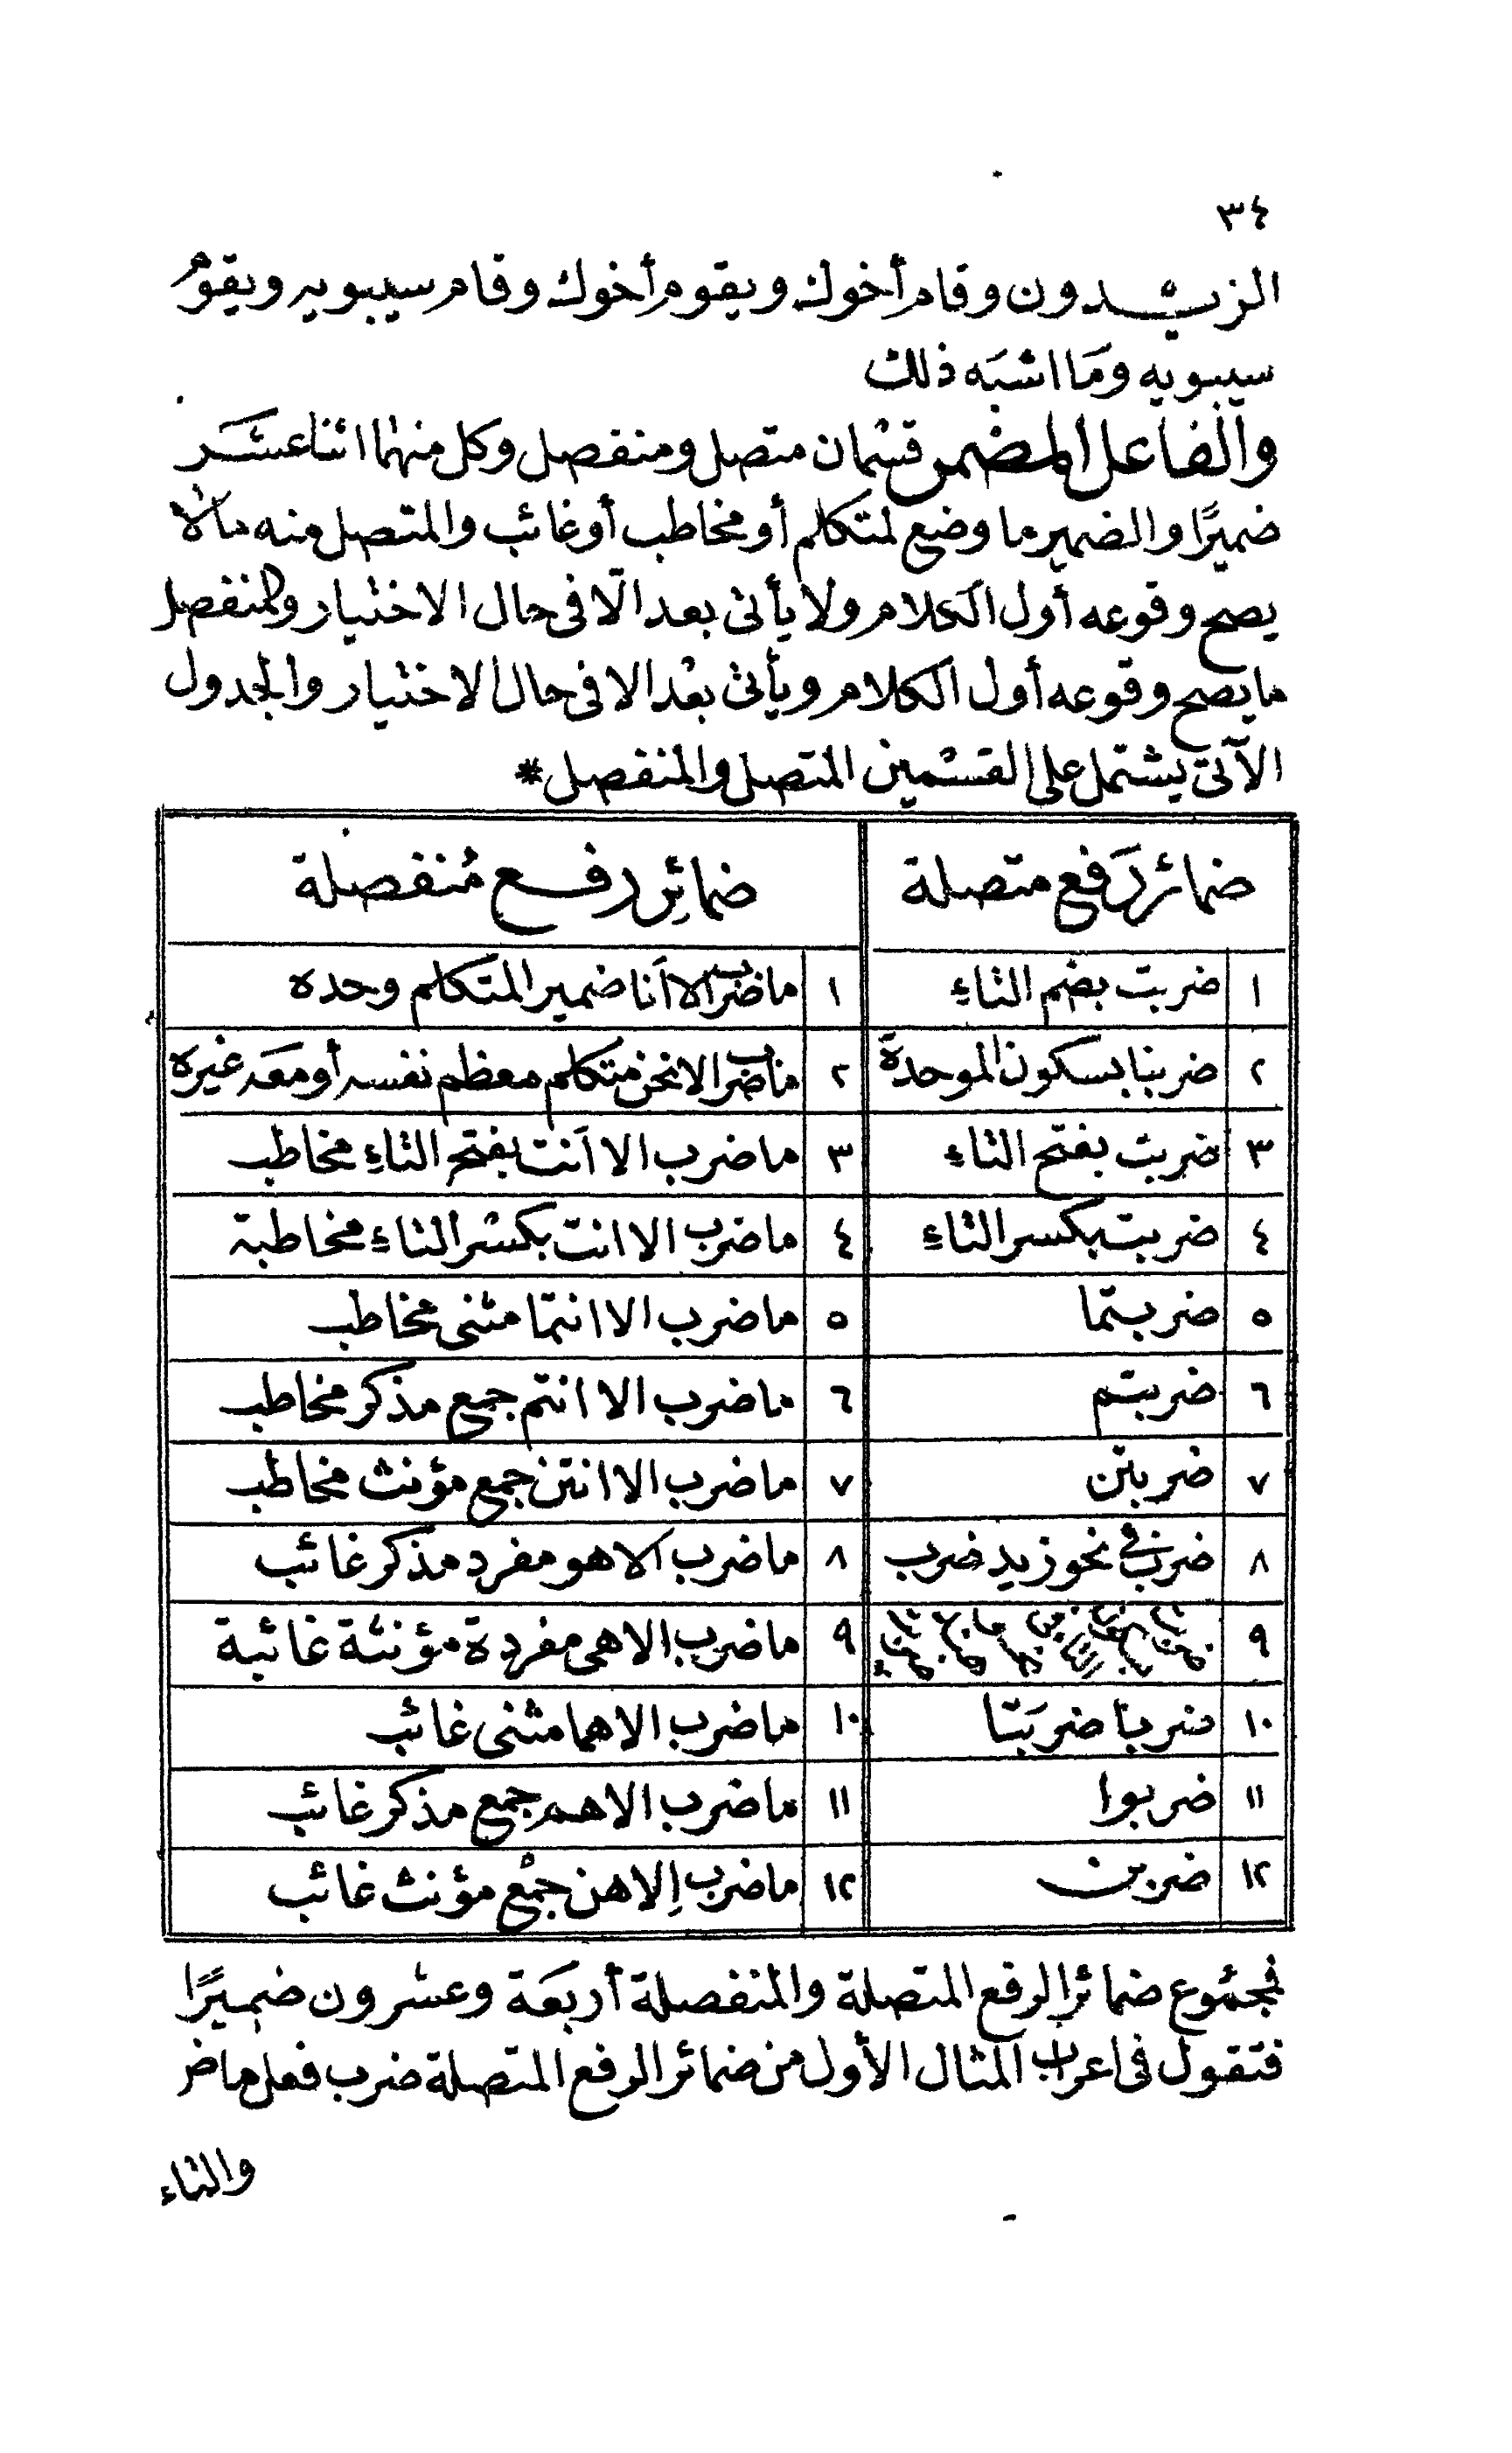 ٣٤
الزيدون وقام أخوك ويقوم أخوك وقام سيبويه ويقومُ
سيبويه ومَا اشبَه ذلك
والفاعل المضمر قسمان متصل ومنفصل وكل منهما اثنا عشَر
ضميرًا والضمير ما وضع لمتكلم أو مخاطب أو غائب والمتصل منه ما لا
يصح وقوعه أول الكلام ولا يأتى بعد الّا فى حال الاختيار والمنفصل
ما يصح وقوعه أول الكلام ويأتى بعْد الا فى حال الاختيار والجدول
الآتى يشتمل على القسمين المتصل والمنفصل*
ضمائر رَفع متصلة ضمائِر رفع مُنفصلة
١ ضربت بضم التاءِ ١ ما ضرب الا اَنا ضمير المتكلم وحده
٢ ضربنا بسكون الموحدة ٢ ما ضرب الا نحن متكلم معظم نفسه أو معَه غيره
٣ ضربت بفتح التاءِ ٣ ما ضرب الا اَنت بفتح التاءِ مخاطب
٤ ضربت بكسر التاءِ ٤ ما ضرب الا انت بكسر التاءِ مخاطبة
٥ ضربتما ٥ ما ضرب الا انتما مثنى مخاطب
٦ ضربتم ٦ ما ضرب الا انتم جمع مذكر مخاطب
٧ ضربتن ٧ ما ضرب الا انتن جمع مؤنث مخاطب
٨ ضرب فى نحو زيد ضرب ٨ ما ضرب الا هو مفرد مذكر غائب
٩ ٩ ما ضرب الا هى مفردة مؤنثة غائبة
١٠ ضربا ضربَتا ١٠ ما ضرب الا هما مثنى غائب
١١ ضربوا ١١ ما ضرب الا هم جمع مذكر غائب
١٢ ضربن ١٢ ما ضرب اِلا هن جمْع مؤنث غائب
فمجمُوع ضمائر الرفع المتصلة والمنفصلة أربعَة وعشرون ضميرًا
فتقول فى اعراب المثال الأول من ضمائر الرفع المتصلة ضرب فعل ماض
والتاء